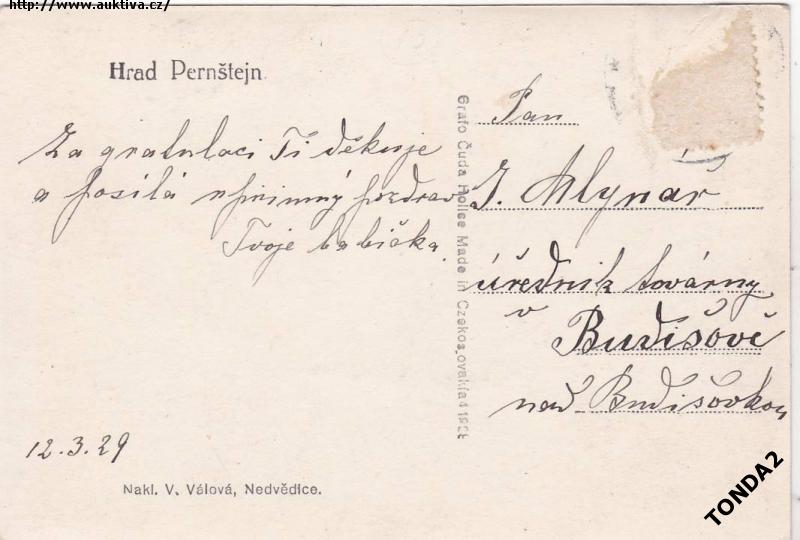 http://www.auktiva.cz/
Hrad Pernštejn
Za gratulaci Ti děkuje
a posílá upřímný pozdrav
Tvoje babička.
12.3.29
Nakl. V. Válová, Nedvědice.
Grafo Čuda Holice Made in Czekoslovakia 1928
Pan
J. Mlynář
úředník továrny
v
Budišově
nad Budišovkou
TONDA2